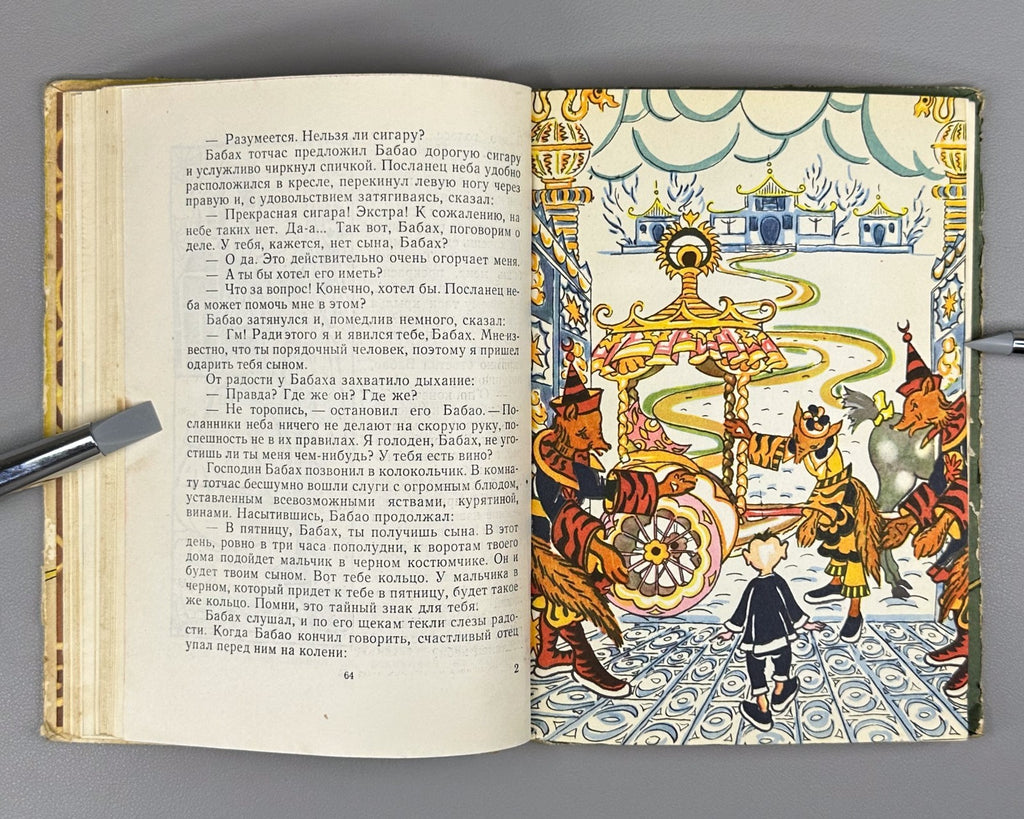 — Разумеется. Нельзя ли сигару?
Бабах тотчас предложил Бабао дорогую сигару
и услужливо чиркнул спичкой. Посланец неба удобно
расположился в кресле, перекинул левую ногу через
правую и, с удовольствием затягиваясь, сказал:
— Прекрасная сигара! Экстра! К сожалению, на
небе таких нет. Да-а... Так вот, Бабах, поговорим о
деле. У тебя, кажется, нет сына, Бабах?
— О да. Это действительно очень огорчает меня.
— А ты бы хотел его иметь?
— Что за вопрос! Конечно, хотел бы. Посланец не-
ба может помочь мне в этом?
Бабао затянулся и, помедлив немного, сказал:
— Гм! Ради этого я и явился тебе, Бабах. Мне из-
вестно, что ты порядочный человек, поэтому я пришел
одарить тебя сыном.
От радости у Бабаха захватило дыхание:
— Правда? Где же он? Где же?
— Не торопись, — остановил его Бабао. — По-
сланники неба ничего не делают на скорую руку, по-
спешность не в их правилах. Я голоден, Бабах, не уго-
стишь ли ты меня чем-нибудь? У тебя есть вино?
Господин Бабах позвонил в колокольчик. В комна-
ту тотчас бесшумно вошли слуги с огромным блюдом,
уставленным всевозможными яствами, курятиной,
винами. Насытившись, Бабао продолжал:
— В пятницу, Бабах, ты получишь сына. В этот
день, ровно в три часа пополудни, к воротам твоего
дома подойдет мальчик в черном костюмчике. Он и
будет твоим сыном. Вот тебе кольцо. У мальчика в
черном, который придет к тебе в пятницу, будет такое
же кольцо. Помни, это тайный знак для тебя.
Бабах слушал, и по его щекам текли слезы радо-
сти. Когда Бабао кончил говорить, счастливый отец
упал перед ним на колени:
64
2